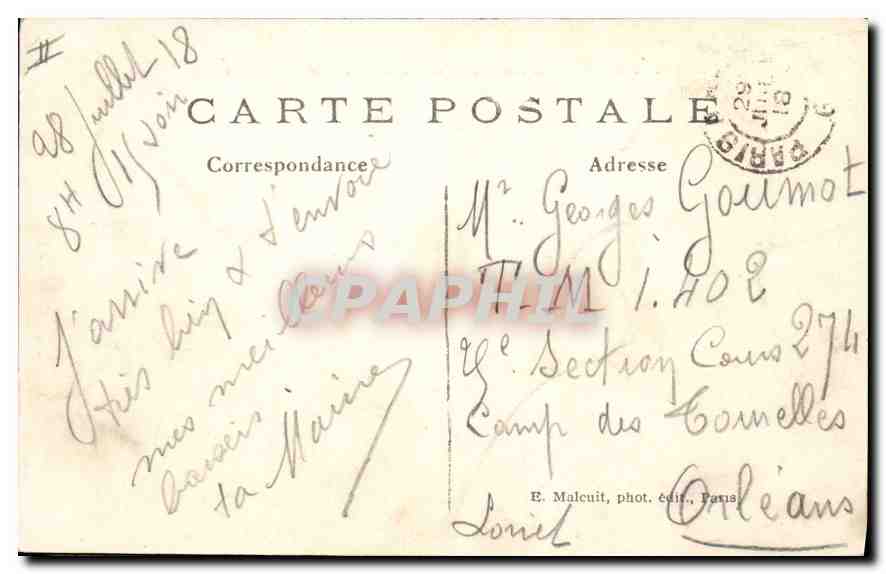 II
28 Juillet 18
8H soir
J'arrive
très bien & t'envoie
mes meilleurs
baisers
ta
CARTE POSTALE
Correspondance
Adresse
PARIS
29
18
Mr. Georges Goumot
T-M 1.402
Section Cours 274
Camp des Tourelles
Orléans
Loiret
E. Malcuit, phot. édit., Paris
CPAPHIL